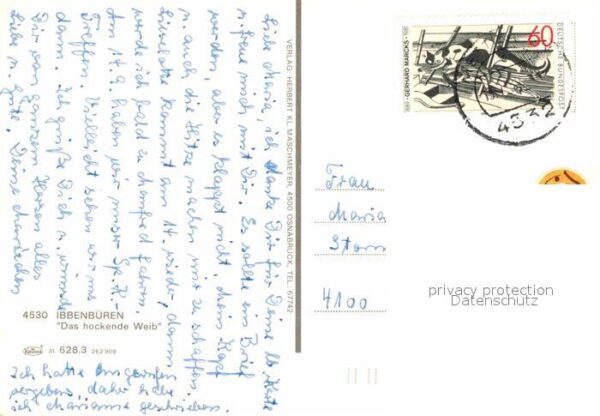 Liebe Maria, ich danke Dir für Deine lb. Karte
u. freue mich mit Dir. Es sollte ein Brief
werden, aber es klappt nicht, mein Kopf
u. auch die Hitze machen mir zu schaffen.
kommt am 14. wieder, dann
werde ich bald zu Manfred fahren.
Am 14.9. haben wir unser
Treffen. Vielleicht sehen wir uns
dann. Ich grüße Dich u. wünsche
Dir von ganzem Herzen alles
Liebe u. Gute. Deine
4530 IBBENBÜREN
"Das hockende Weib"
31 628.3 262 909
Ich hatte
vergeben, daher habe
ich Marianne geschrieben.
VERLAG: HERBERT KL. MASCHMEYER, 4500 OSNABRÜCK, TEL. 67742
1889 · GERHARD MARCKS · 1981
60
DEUTSCHE BUNDESPOST
Frau
Maria
Storm
4100
privacy protection
Datenschutz